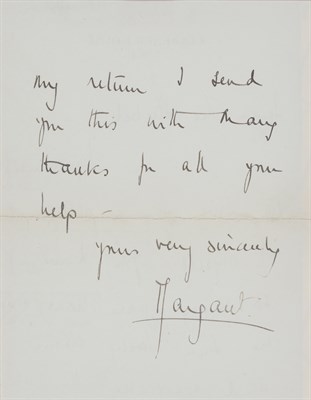 my return I send
you this with many
thanks for all your
help –
yours very sincerely
Margaret